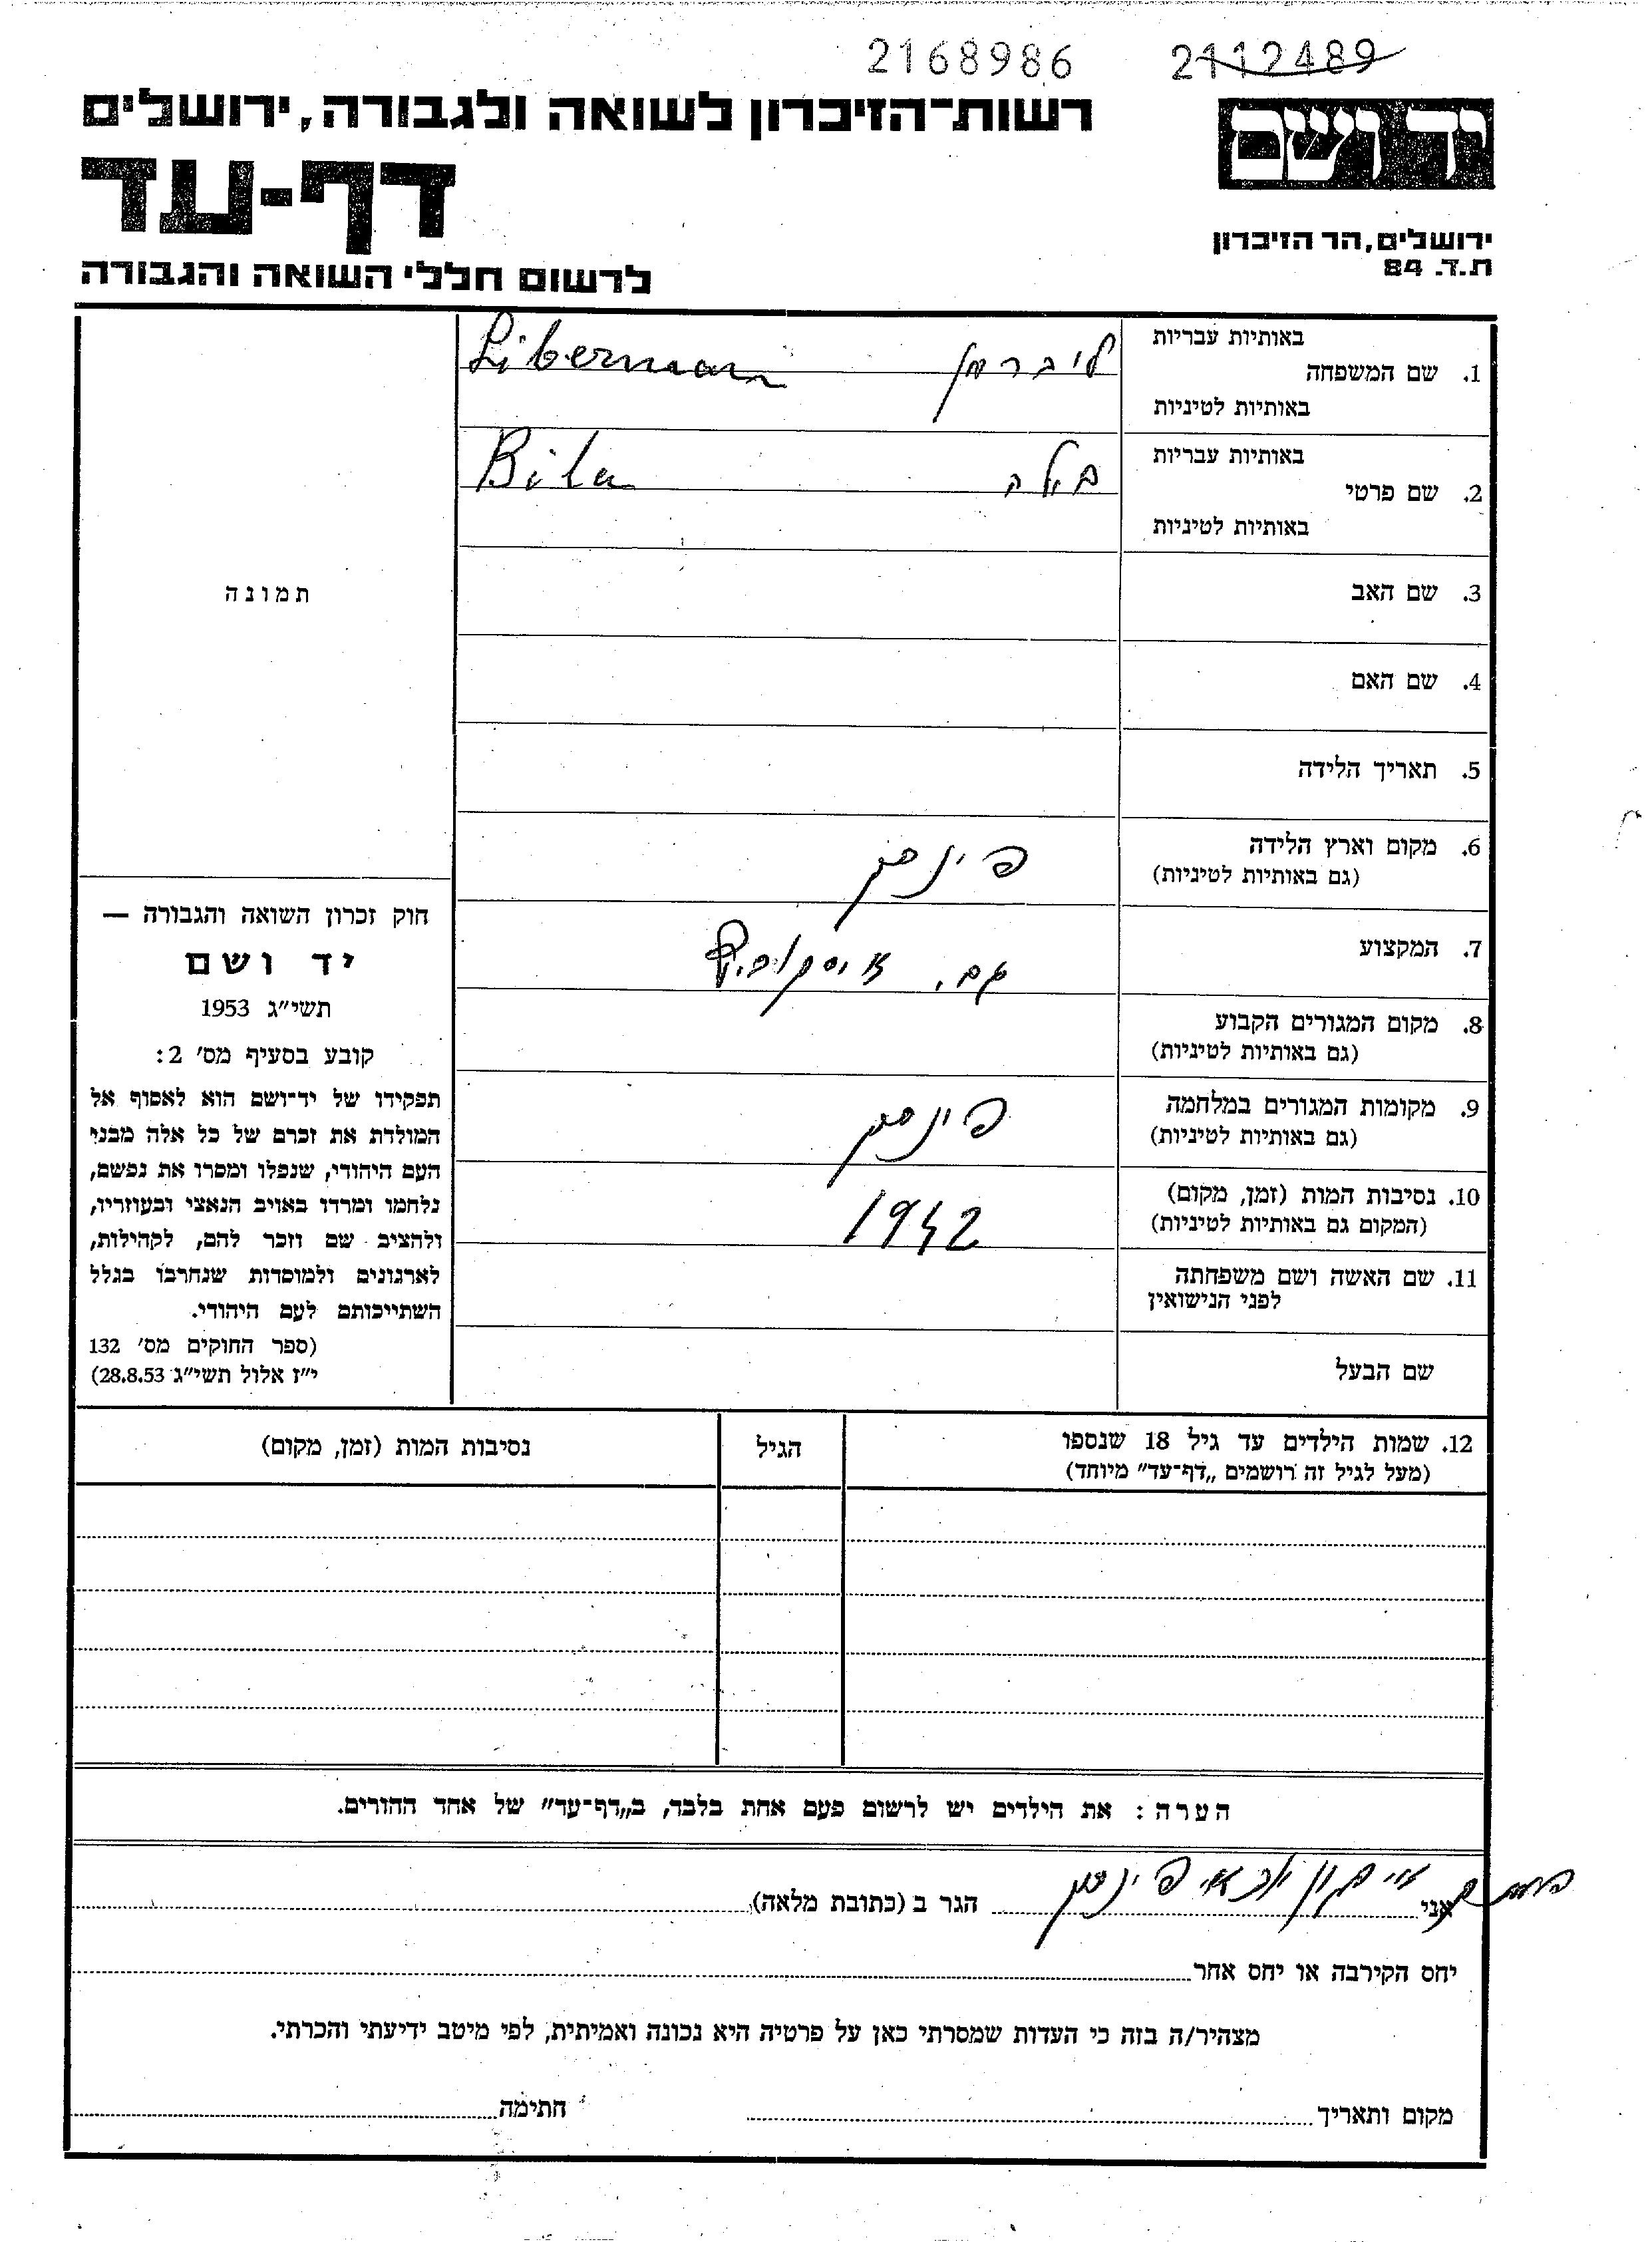 2168986 2112489
יד ושם
רשות־הזיכרון לשואה ולגבורה, ירושלים
דף-עד
ירושלים, הר הזיכרון
ת.ד. 84
לרשום חללי השואה והגבורה
באותיות עבריות
1. שם המשפחה ליברמן Liberman
באותיות לטיניות
באותיות עבריות
2. שם פרטי בילה Bila
באותיות לטיניות
3. שם האב
4. שם האם
5. תאריך הלידה
6. מקום וארץ הלידה פינסק
(גם באותיות לטיניות)
7. המקצוע
8. מקום המגורים הקבוע
(גם באותיות לטיניות)
9. מקומות המגורים במלחמה פינסק
(גם באותיות לטיניות)
10. נסיבות המות (זמן, מקום) 1942
(המקום גם באותיות לטיניות)
11. שם האשה ושם משפחתה
לפני הנישואין
שם הבעל
תמונה
חוק זכרון השואה והגבורה —
יד ושם
תשי״ג 1953
קובע בסעיף מס׳ 2:
תפקידו של יד־ושם הוא לאסוף אל
המולדת את זכרם של כל אלה מבני
העם היהודי, שנפלו ומסרו את נפשם,
נלחמו ומרדו באויב הנאצי ובעוזריו,
ולהציב שם וזכר להם, לקהילות,
לארגונים ולמוסדות שנחרבו בגלל
השתייכותם לעם היהודי.
(ספר החוקים מס׳ 132
י״ז אלול תשי״ג 28.8.53)
12. שמות הילדים עד גיל 18 שנספו הגיל נסיבות המות (זמן, מקום)
(מעל לגיל זה רושמים „דף־עד״ מיוחד)
הערה: את הילדים יש לרשום פעם אחת בלבד, ב„דף־עד״ של אחד ההורים.
אני פינסק הגר ב (כתובת מלאה)
יחס הקירבה או יחס אחר
מצהיר/ה בזה כי העדות שמסרתי כאן על פרטיה היא נכונה ואמיתית, לפי מיטב ידיעתי והכרתי.
מקום ותאריך חתימה